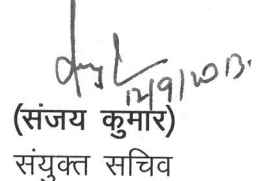 12/9/2013.
(संजय कुमार)
संयुक्त सचिव